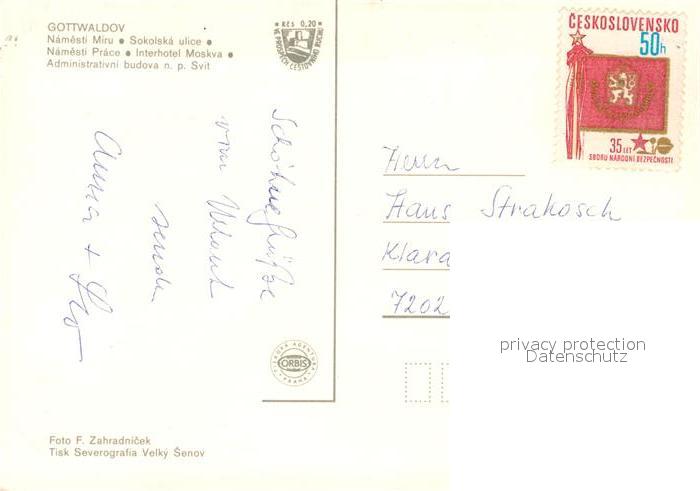 GOTTWALDOV
Náměstí Míru ● Sokolská ulice ●
Náměstí Práce ● Interhotel Moskva ●
Administrativní budova n. p. Svit
Kčs 0,20
VE PROSPĚCH CESTOVNÍHO RUCHU
ČESKOSLOVENSKO
50h
35 LET
SBORU NÁRODNÍ BEZPEČNOSTI
Schöne Grüße
vom Urlaub
senden
Anna +
Herrn
Hans Strakosch
Klara
7202
privacy protection
Datenschutz
ORBIS
PRAHA
Foto F. Zahradníček
Tisk Severografia Velký Šenov